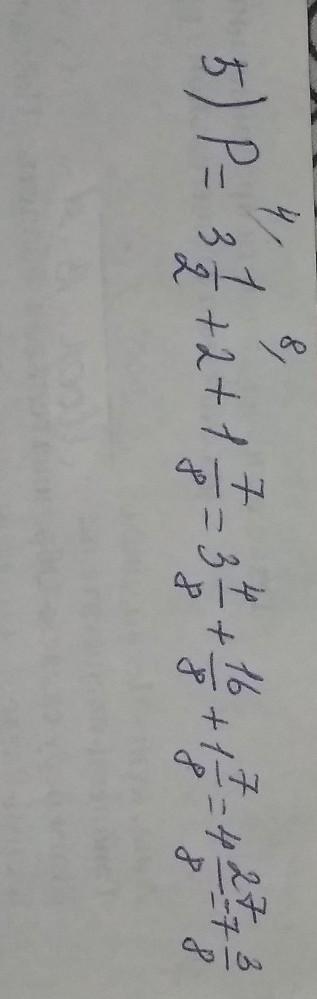 5) P = 3 4/ 1/2 + 2 8/ + 1 7/8 = 3 4/8 + 16/8 + 1 7/8 = 4 27/8 = 7 3/8